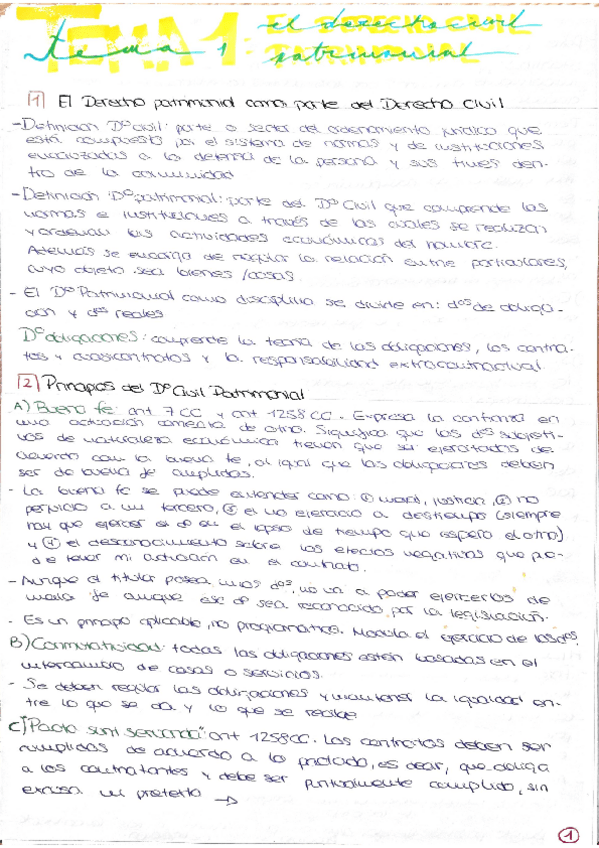 TEMA 1: EL DERECHO CIVIL PATRIMONIAL
tema 1 el derecho civil patrimonial
1 El Derecho patrimonial como parte del Derecho Civil
- Definición Dº civil: parte o sector del ordenamiento jurídico que
está compuesto por el sistema de normas y de instituciones
encauzadas a la defensa de la persona y sus fines den-
tro de la comunidad
- Definición Dº patrimonial: parte del Dº Civil que comprende las
normas e instituciones a través de las cuales se realizan
y ordenan las actividades económicas del hombre.
Además se encarga de regular la relación entre particulares,
cuyo objeto sea bienes/cosas.
- El Dº Patrimonial como disciplina se divide en: dºs de obliga-
ción y dºs reales
Dº obligaciones: comprende la teoría de las obligaciones, los contra-
tos y cuasicontratos y la responsabilidad extracontractual.
2 Principios del Dº Civil Patrimonial
A) Buena fe: art 7 CC y art 1258 CC. Expresa la confianza en
una actuación correcta de otro. Significa que los dºs subjeti-
vos de naturaleza económica tienen que ser ejercitados de
acuerdo con la buena fe, al igual que las obligaciones deben
ser de buena fe cumplidas.
- La buena fe se puede entender como: ① moral, justicia, ② no
perjuicio a un tercero, ③ el no ejercicio a destiempo (siempre
hay que ejercer el dº en el lapso de tiempo que espera el otro)
y ④ el desconocimiento sobre los efectos negativos que pue-
de tener mi actuación en el contrato.
- Aunque el titular posea unos dºs, no va a poder ejercerlos de
mala fe aunque ese dº sea reconocido por la legislación.
- Es un principio aplicable, no programático. Modula el ejercicio de los dºs.
B) Conmutatividad: todas las obligaciones están basadas en el
intercambio de cosas o servicios.
- Se deben regular las obligaciones y mantener la igualdad en-
tre lo que se da y lo que se recibe
C) "Pacta sunt servanda": art 1258 CC. Los contratos deben ser
cumplidos de acuerdo a lo pactado, es decir, que obliga
a los contratantes y debe ser puntualmente cumplido, sin
excusa ni pretexto →
1